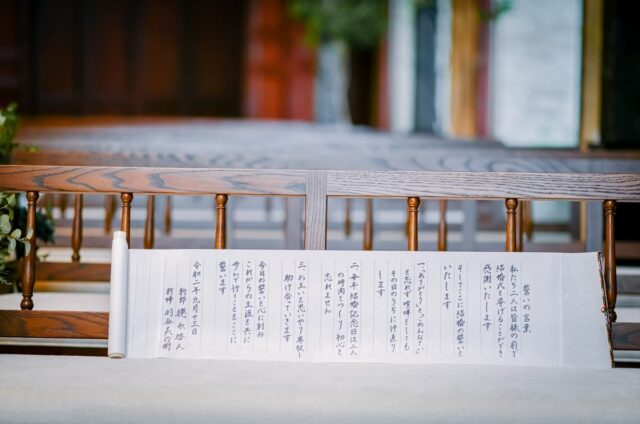 誓いの言葉
私たち二人は皆様の前で
結婚式を挙げることができ
感謝いたします
そしてここに結婚の誓いを
いたします
一、「ありがとう」「ごめんなさい」
を忘れず喧嘩をしても
その日のうちに仲直り
します
二、毎年結婚記念日は二人
の時間をつくり初心を
忘れません
三、お互いを思いやり尊敬し
助け合っていきます
今日の誓いを心に刻み
これからの生涯を共に
歩んで行くことをここに
誓います
令和二年九月十三日
新郎
新婦